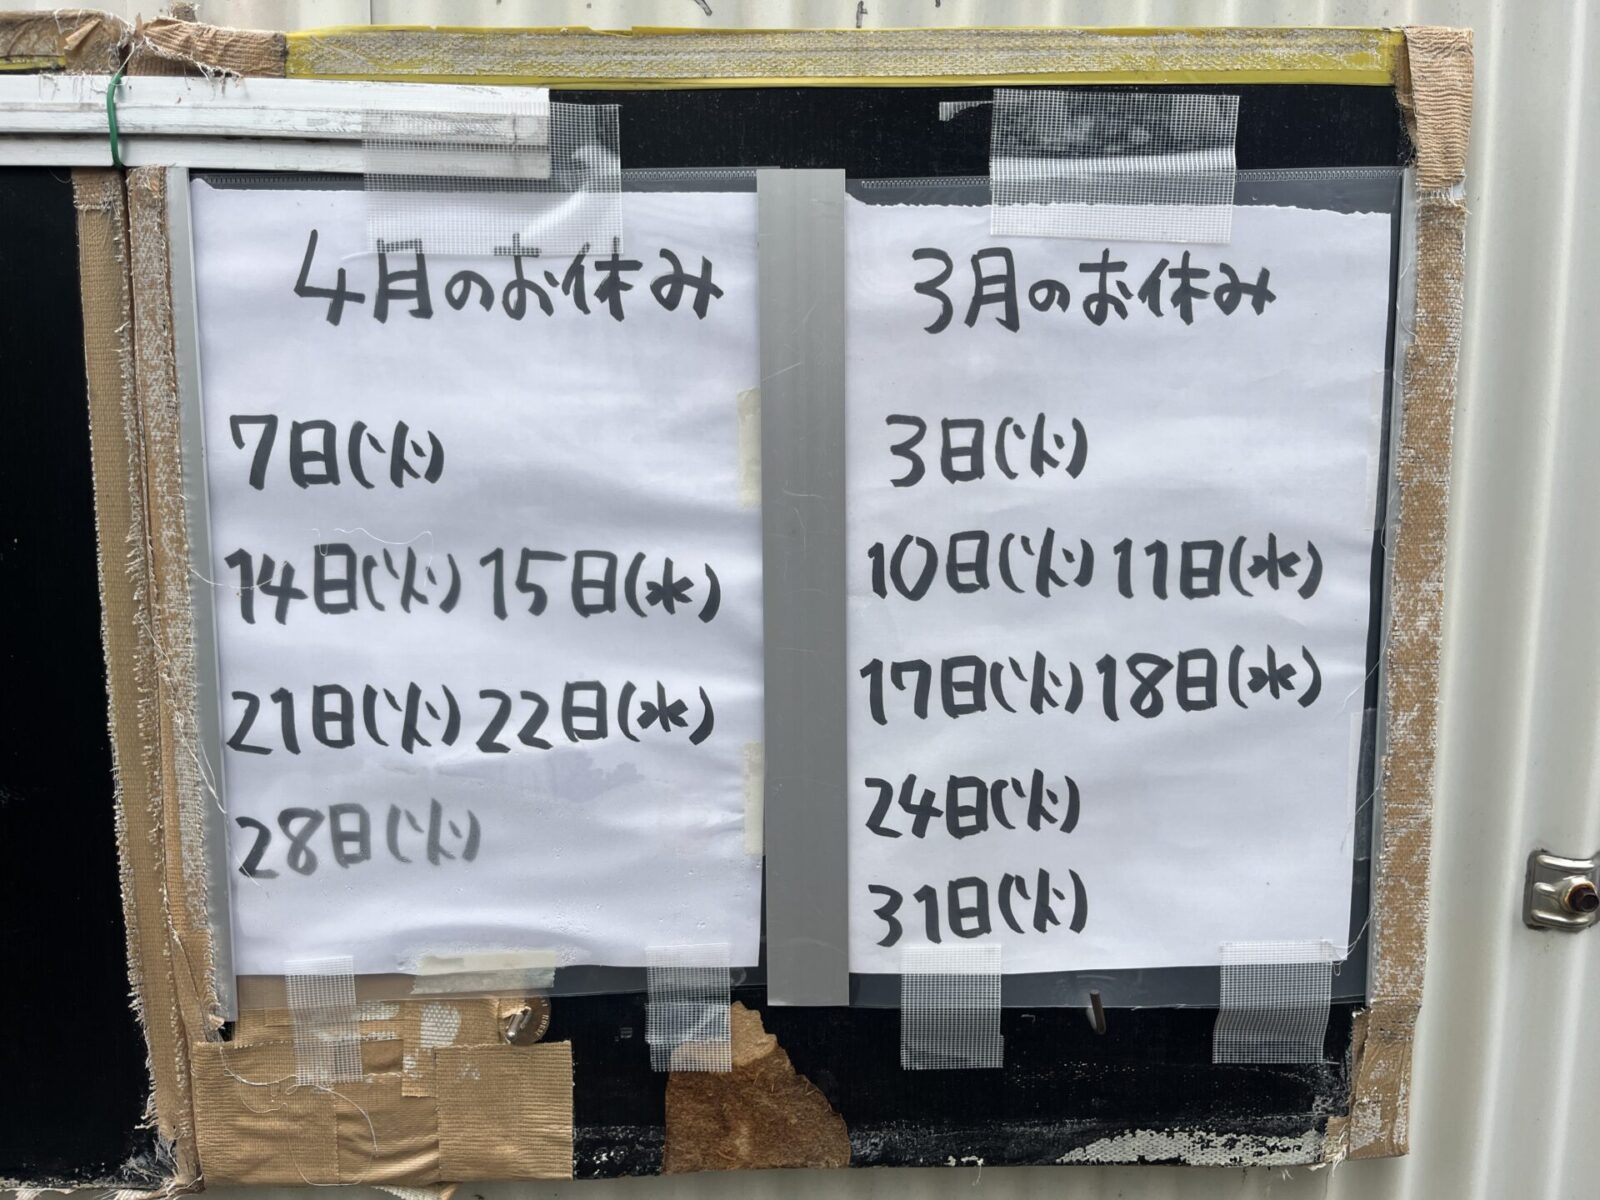 4月のお休み
7日(火)
14日(火) 15日(水)
21日(火) 22日(水)
28日(火)
3月のお休み
3日(火)
10日(火) 11日(水)
17日(火) 18日(水)
24日(火)
31日(火)